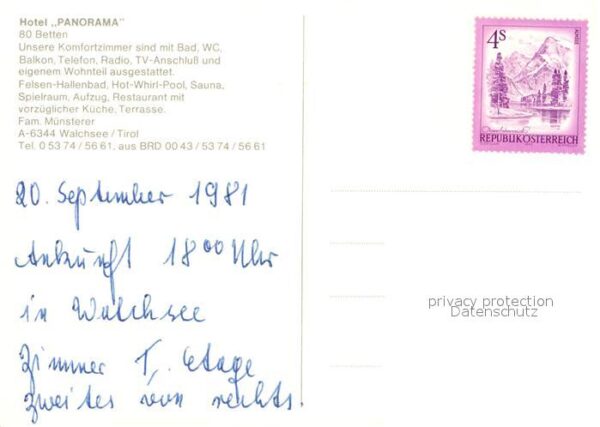 Hotel „PANORAMA"
80 Betten
Unsere Komfortzimmer sind mit Bad, WC,
Balkon, Telefon, Radio, TV-Anschluß und
eigenem Wohnteil ausgestattet.
Felsen-Hallenbad, Hot-Whirl-Pool, Sauna,
Spielraum, Aufzug, Restaurant mit
vorzüglicher Küche, Terrasse.
Fam. Münsterer
A-6344 Walchsee / Tirol
Tel. 0 53 74 / 56 61, aus BRD 00 43 / 53 74 / 56 61
4S
REPUBLIK ÖSTERREICH
20. September 1981
Ankunft 18 00 Uhr
in Walchsee
Zimmer I. Etage
zweites von rechts.
privacy protection
Datenschutz